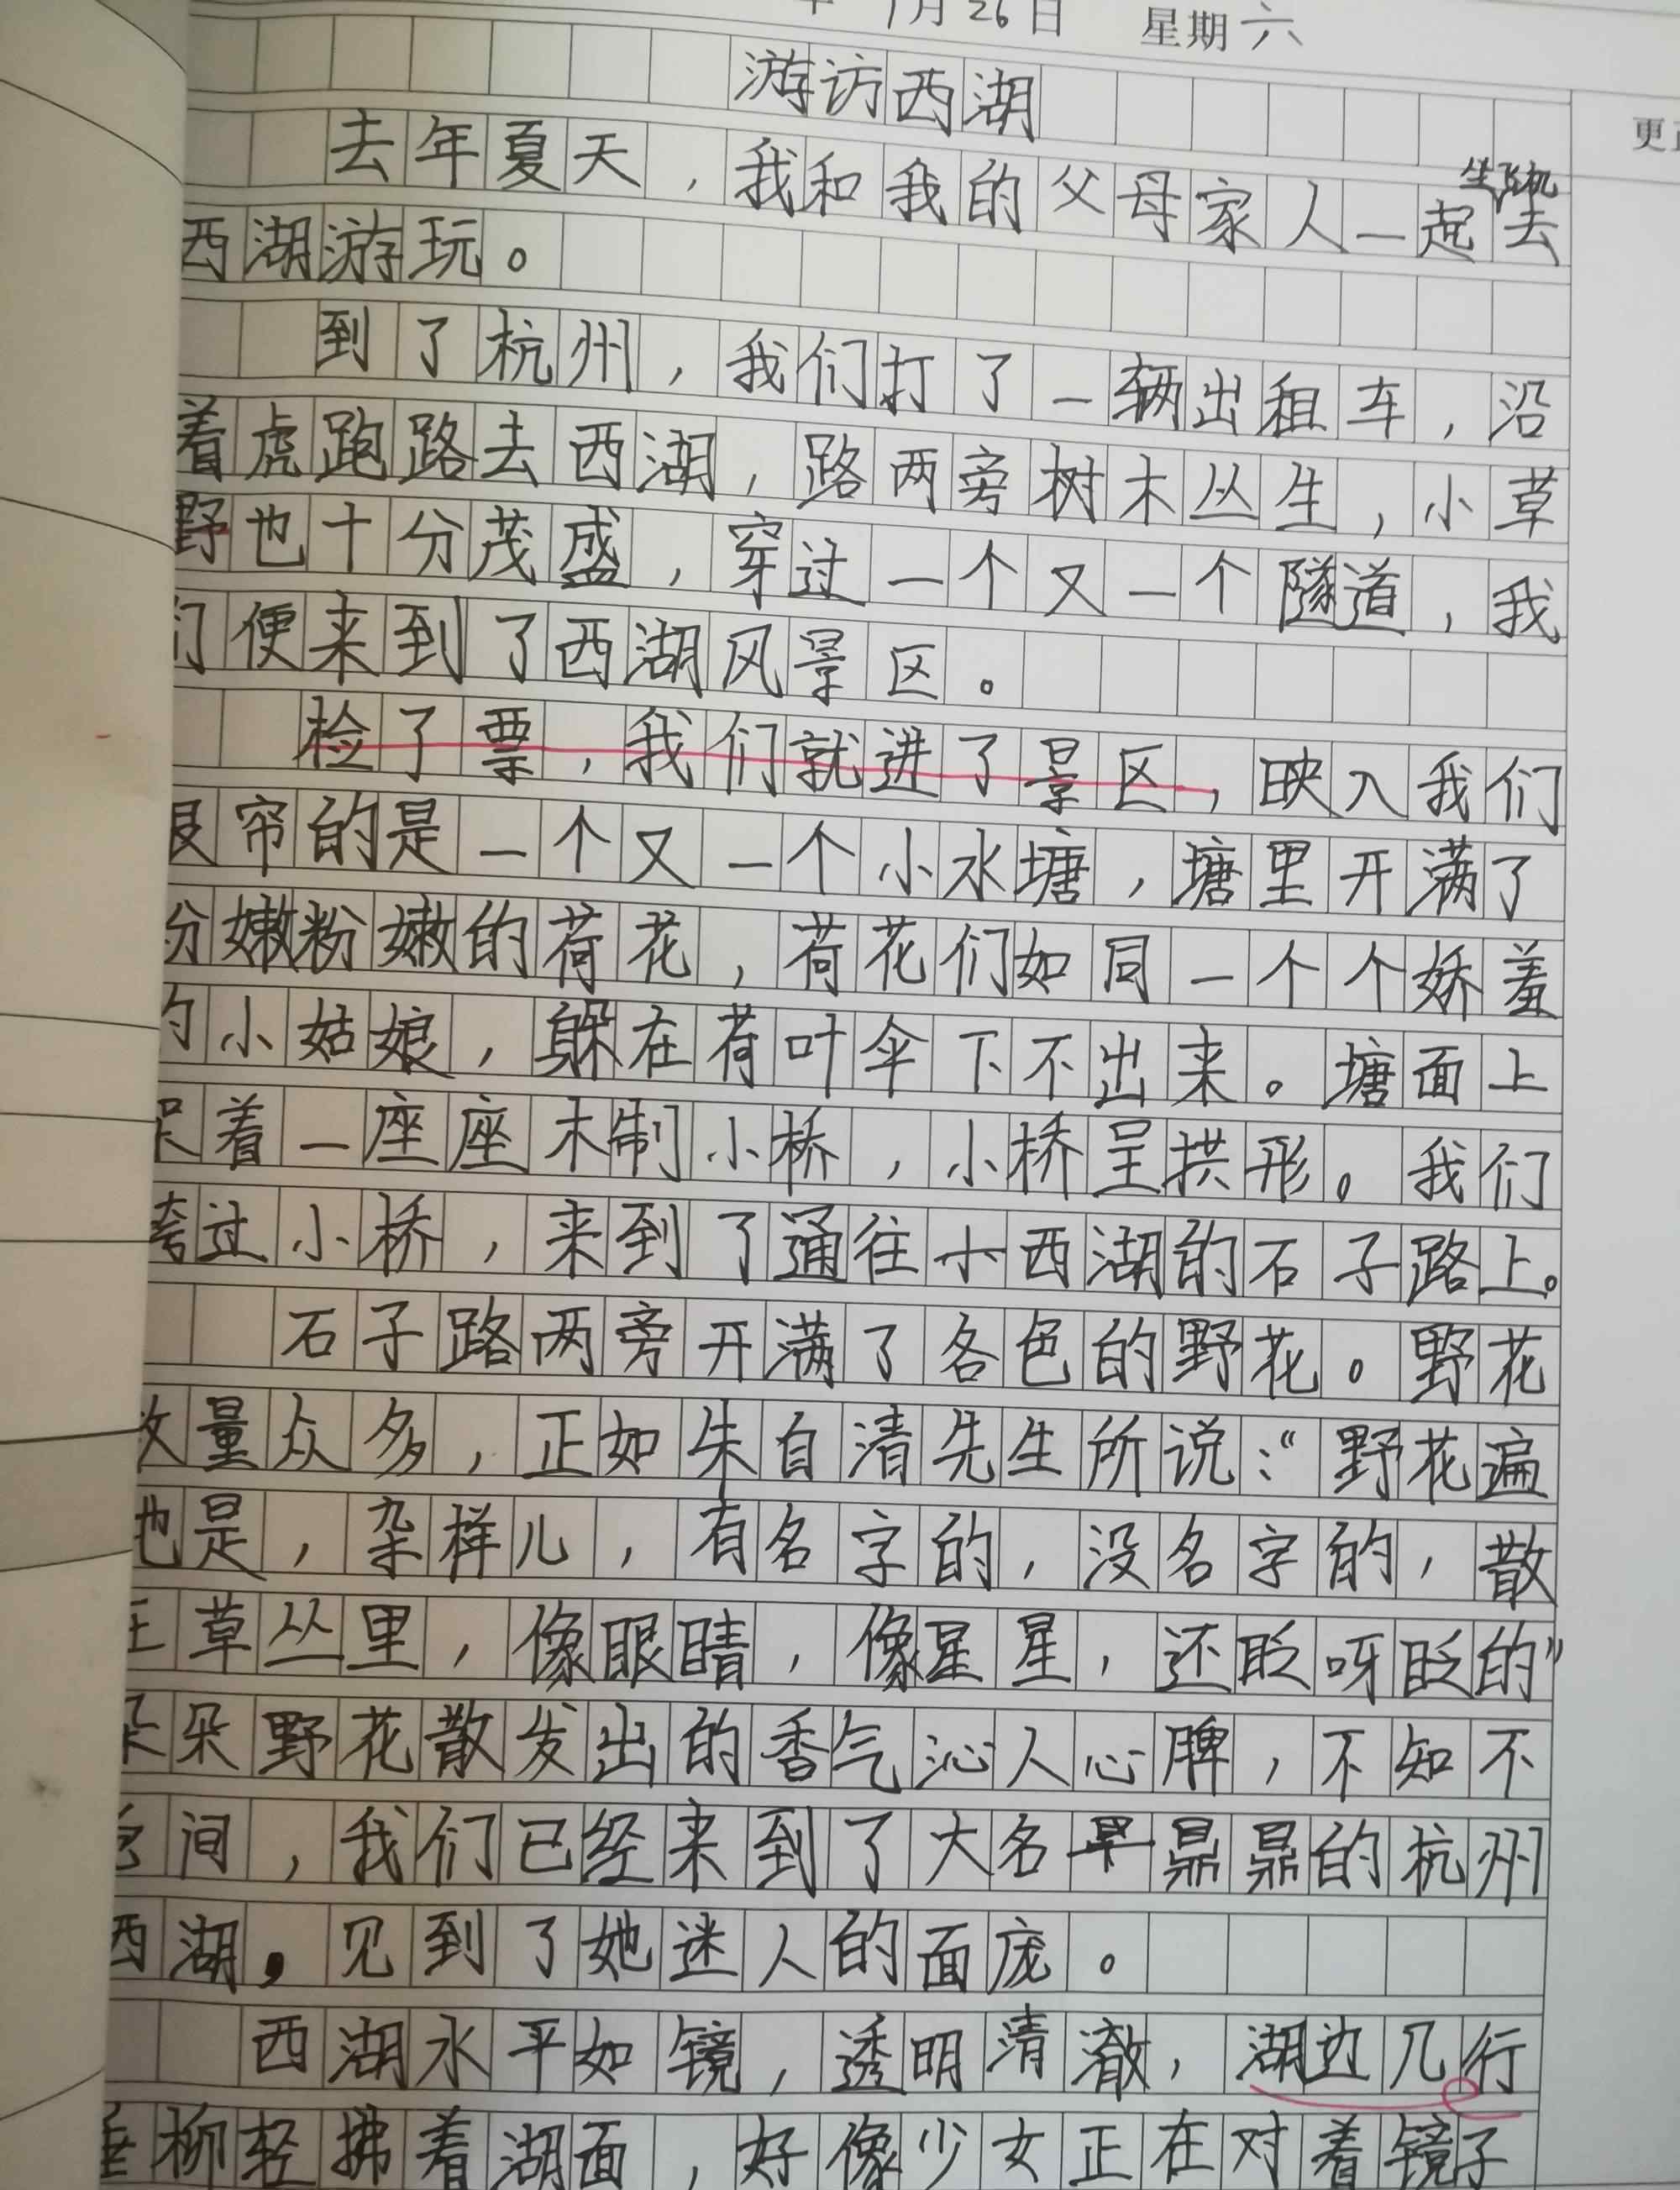 年1月26日 星期六
游访西湖
更正
去年夏天，我和我的父母家人一起坐飞机去
西湖游玩。
到了杭州，我们打了一辆出租车，沿
着虎跑路去西湖，路两旁树木丛生，小草
野也十分茂盛，穿过一个又一个隧道，我
们便来到了西湖风景区。
检了票，我们就进了景区，映入我们
眼帘的是一个又一个小水塘，塘里开满了
粉嫩粉嫩的荷花，荷花们如同一个个娇羞
的小姑娘，躲在荷叶伞下不出来。塘面上
架着一座座木制小桥，小桥呈拱形。我们
跨过小桥，来到了通往小西湖的石子路上。
石子路两旁开满了各色的野花。野花
数量众多，正如朱自清先生所说：“野花遍
地是，杂样儿，有名字的，没名字的，散
在草丛里，像眼睛，像星星，还眨呀眨的”
朵朵野花散发出的香气沁人心脾，不知不
觉间，我们已经来到了大名鼎鼎的杭州
西湖，见到了她迷人的面庞。
西湖水平如镜，透明清澈，湖边几行
垂柳轻拂着湖面，好像少女正在对着镜子